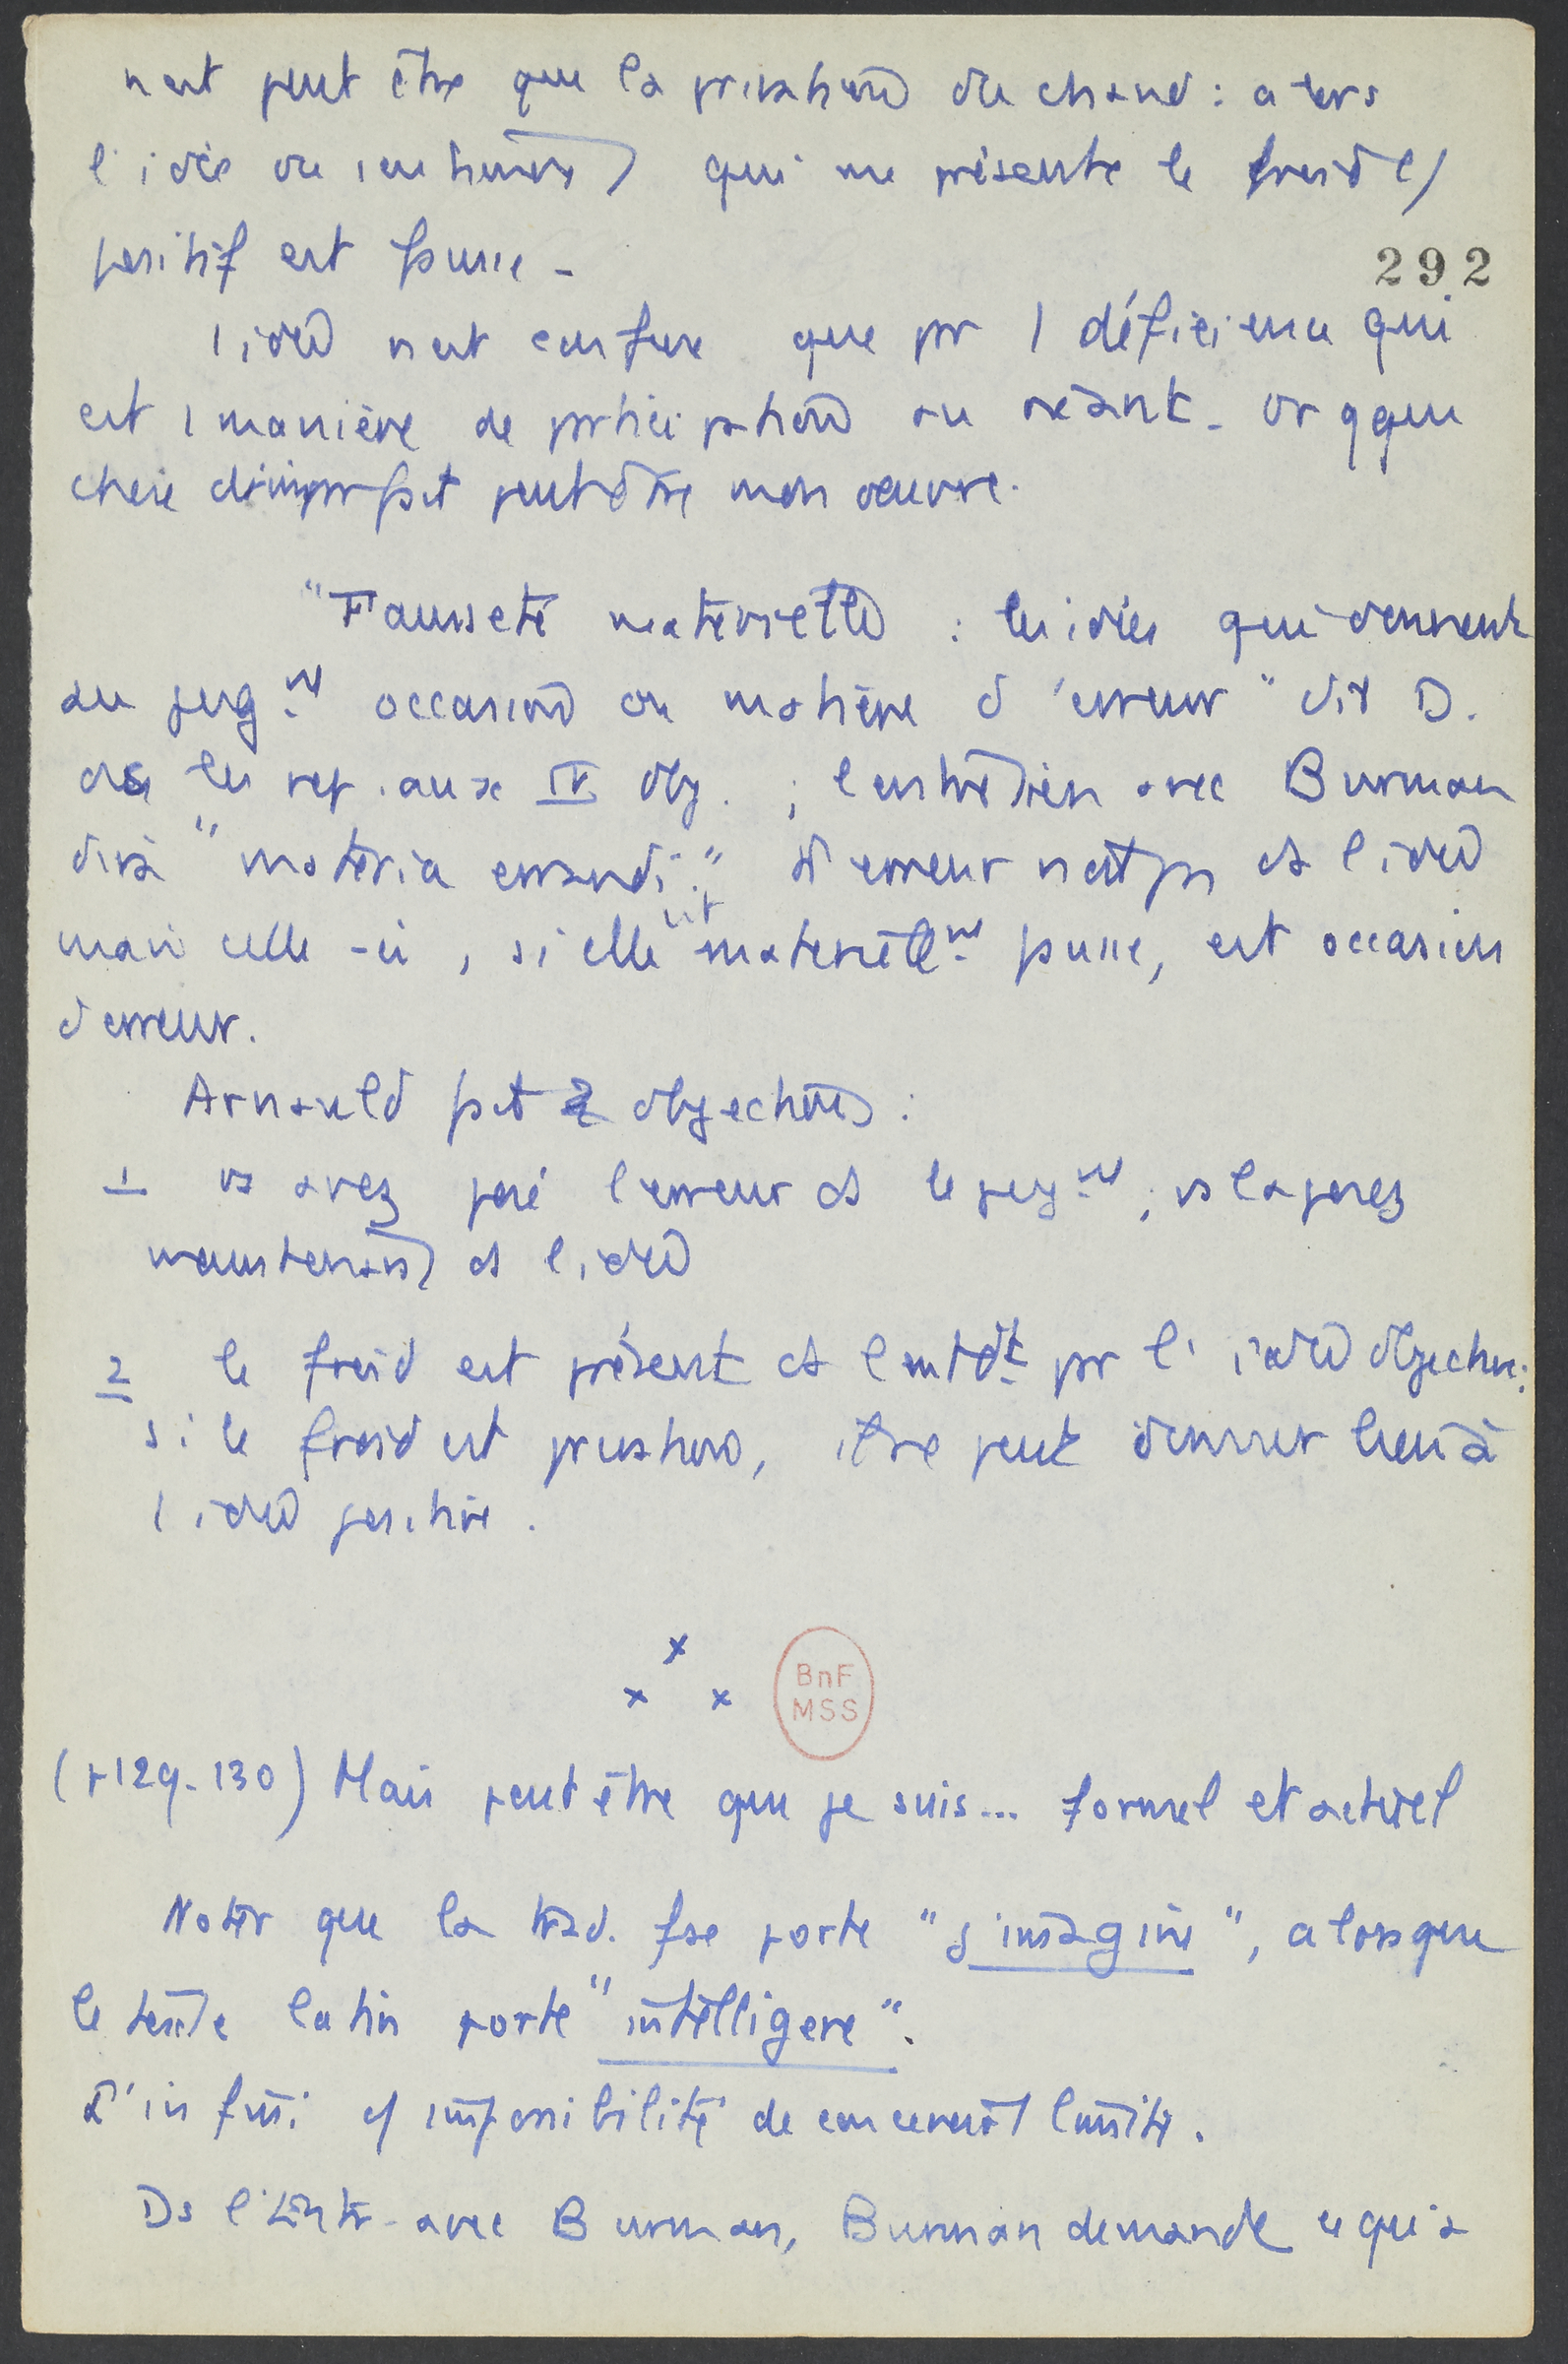 n'est peut être que la privation du chaud : alors
l'idée ou sentiment qui me présente le froid c/
positif est fausse -
292
1 idée n'est confuse que par 1 déficience qui
est 1 manière de participation au néant - or qque
chose d'imparfait peut être mon oeuvre.
"Fausseté matérielle : les idées qui donnent
au jugnt occasion ou matière d'erreur" dit D.
ds les rep. aux IV obj. ; l'entretien avec Burman
dira "materia errandi". L'erreur n'est pas ds l'idée
mais celle-ci, si elle est matériellnt fausse, est occasion
d'erreur.
Arnauld fait 2 objections :
1 vs avez posé l'erreur ds le jugnt ; vs la posez
maintenant ds l'idée
2 le froid est présent ds l'entdt par l'idée objective ;
si le froid est privation, il ne peut donner lieu à
1 idée positive.
x
x x
BnF
MSS
(p 129-130) Mais peut être que je suis... formel et actuel
Noter que la trad. fse porte "j'imagine", alors que
le texte latin porte "intelligere".
L'infini c/ impossibilité de concevoir 1 limite.
Ds l'Entr. avec Burman, Burman demande ce qui a